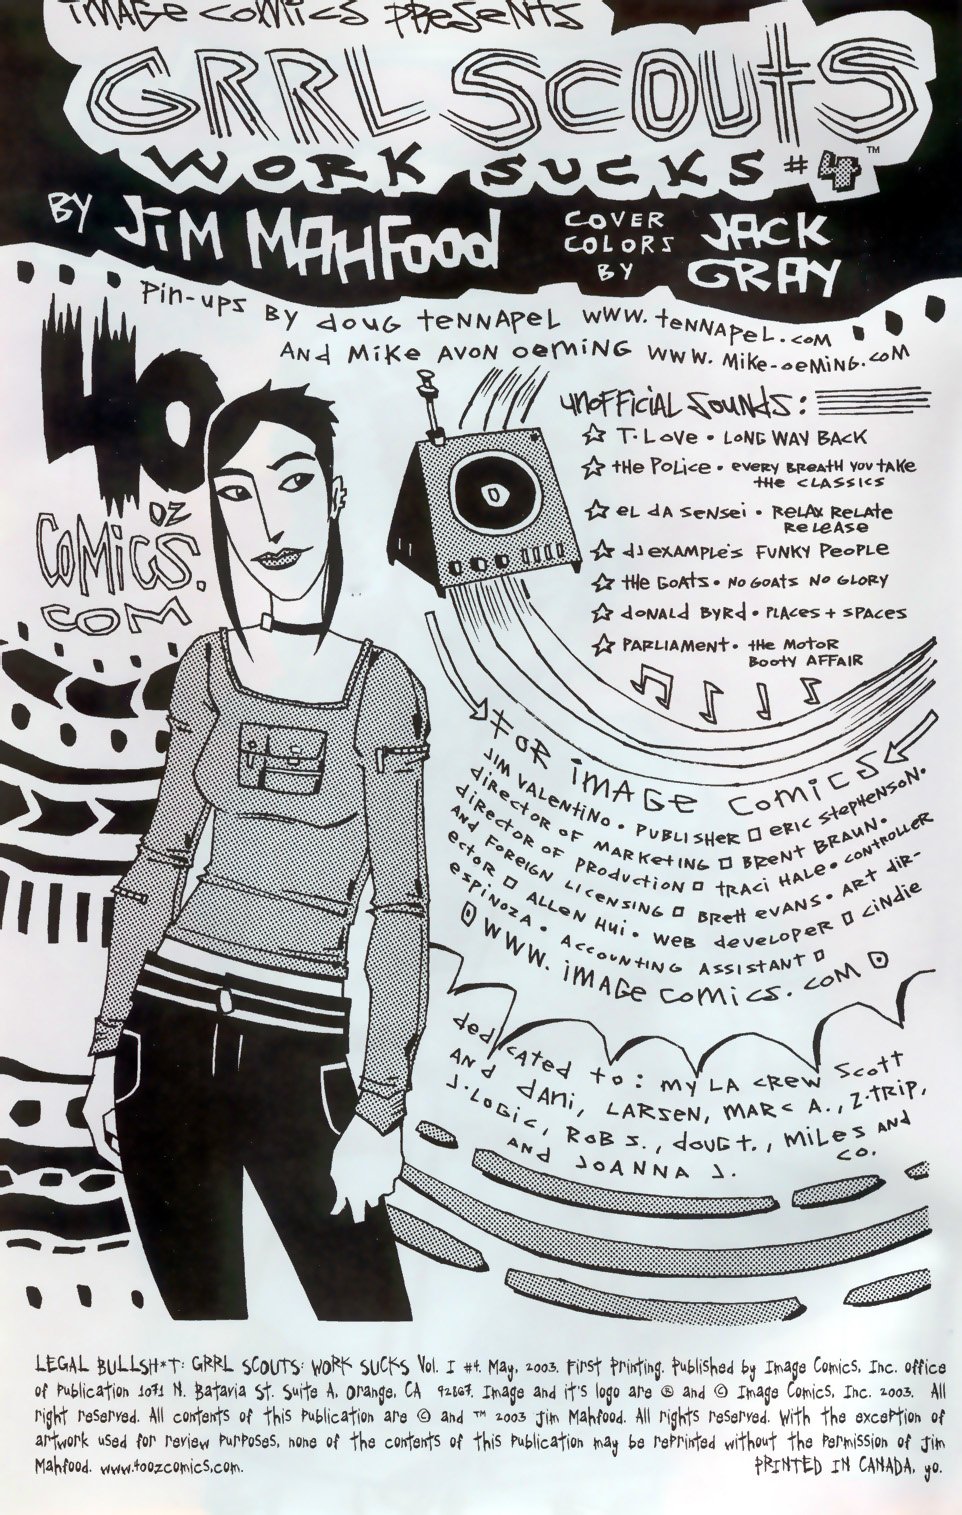 IMAGE COMICS PRESENTS
GRRL SCOUTS
WORK SUCKS #4™
BY JIM MAHFOOD
COVER
COLORS
BY
JACK
GRAY
Pin-ups BY doug tennapel www.tennapel.com
AND MIKE AVON OEMING www.MIKE-OEMING.COM
40
OZ
COMICS.
COM
UNOFFICIAL SOUNDS:
☆ T-LOVE • LONG WAY BACK
☆ THE POLICE • EVERY BREATH YOU TAKE
THE CLASSICS
☆ EL DA SENSEI • RELAX RELATE
RELEASE
☆ DJ EXAMPLE'S FUNKY PEOPLE
☆ THE GOATS • NO GOATS NO GLORY
☆ DONALD BYRD • PLACES + SPACES
☆ PARLIAMENT • THE MOTOR
BOOTY AFFAIR
FOR IMAGE COMICS
JIM VALENTINO • PUBLISHER □ ERIC STEPHENSON •
DIRECTOR OF MARKETING □ BRENT BRAUN •
DIRECTOR OF PRODUCTION □ TRACI HALE • CONTROLLER
AND FOREIGN LICENSING □ BRETT EVANS • ART DIR-
ECTOR □ ALLEN HUI • WEB DEVELOPER □ CINDIE
ESPINOZA • ACCOUNTING ASSISTANT □
WWW.IMAGECOMICS.COM
dedicated to: MY LA CREW SCOTT
AND DANI, LARSEN, MARC A., Z-TRIP,
J-LOGIC, ROB S., DOUG T., MILES AND
CO.
AND JOANNA J.
LEGAL BULLSH*T: GRRL SCOUTS: WORK SUCKS Vol. I #4. May, 2003. First Printing. Published by Image Comics, Inc. Office
of Publication 1071 N. Batavia St. Suite A, Orange, CA 92867. Image and it's logo are ® and © Image Comics, Inc. 2003. All
right reserved. All contents of this Publication are © and ™ 2003 Jim Mahfood. All rights reserved. With the exception of
artwork used for review purposes, none of the contents of this Publication may be reprinted without the permission of Jim
Mahfood. www.40ozcomics.com.
PRINTED IN CANADA, yo.